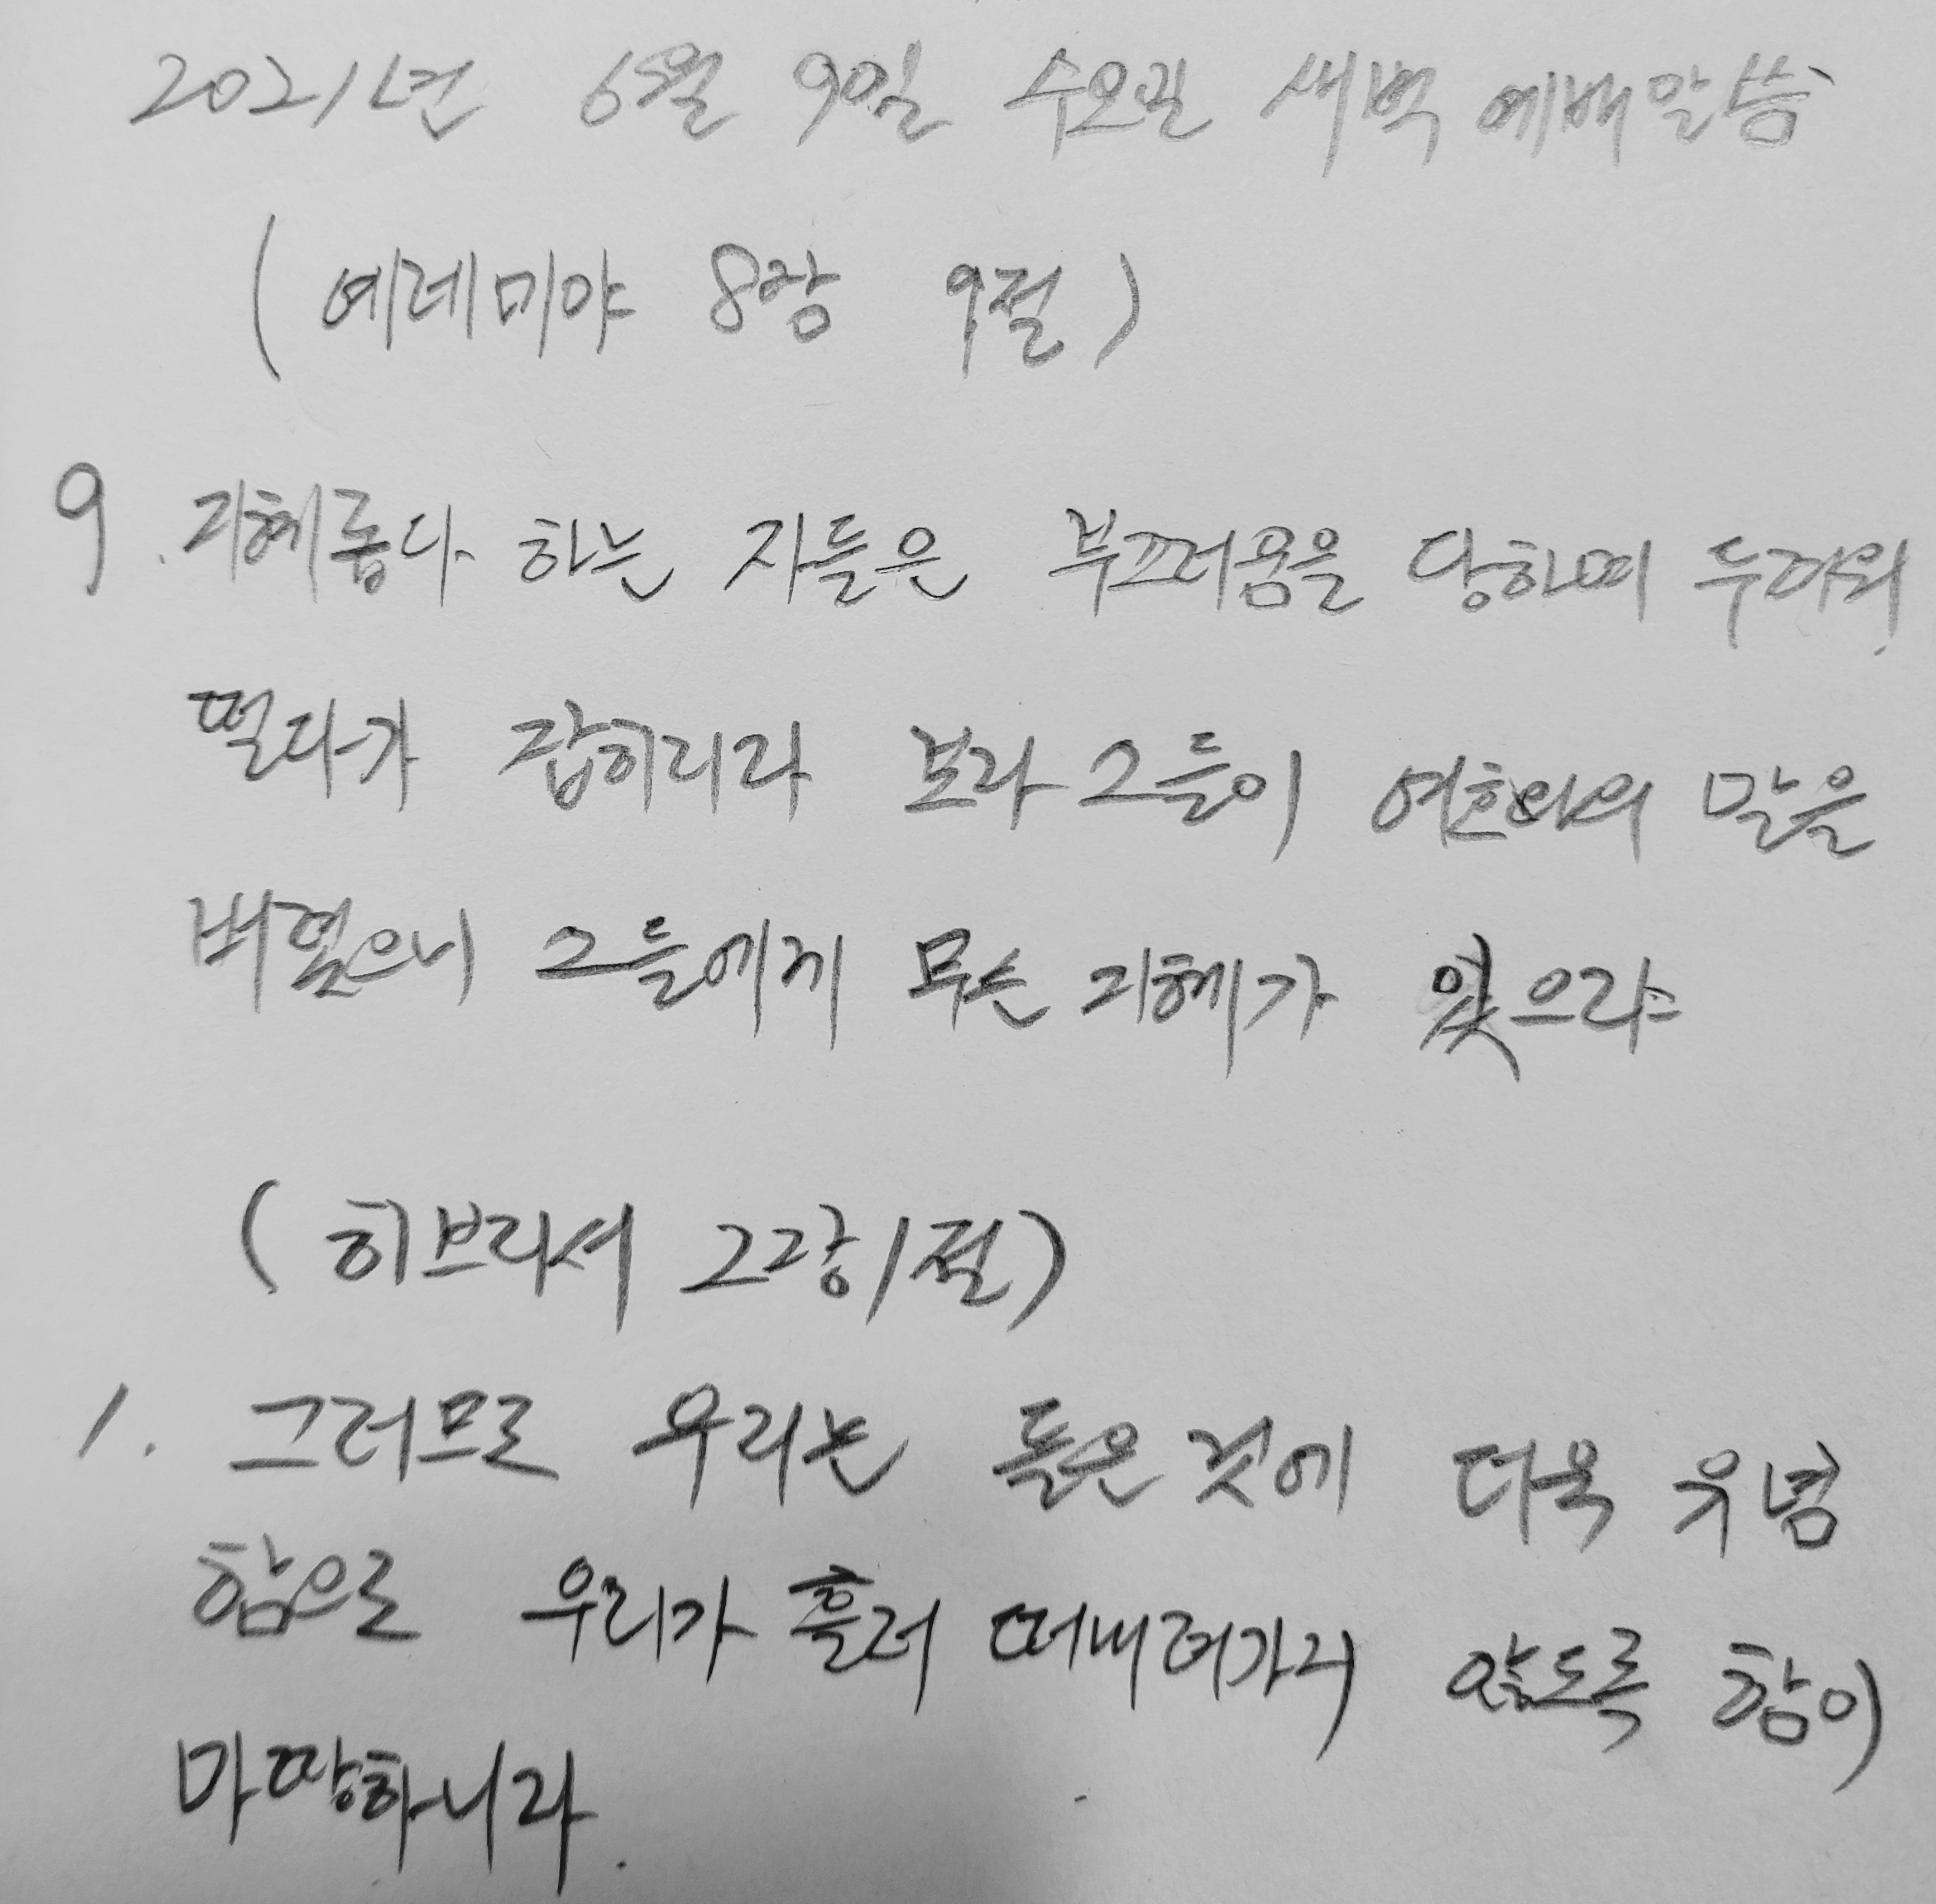 2021년 6월 9일 수요일 새벽 예배말씀
(예레미야 8장 9절)
9. 지혜롭다 하는 자들은 부끄러움을 당하며 두려워
떨다가 잡히리라 보라 그들이 여호와의 말을
버렸으니 그들에게 무슨 지혜가 있으랴
(히브리서 2장 1절)
1. 그러므로 우리는 들은 것에 더욱 유념
함으로 우리가 흘러 떠내려가지 않도록 함이
마땅하니라.